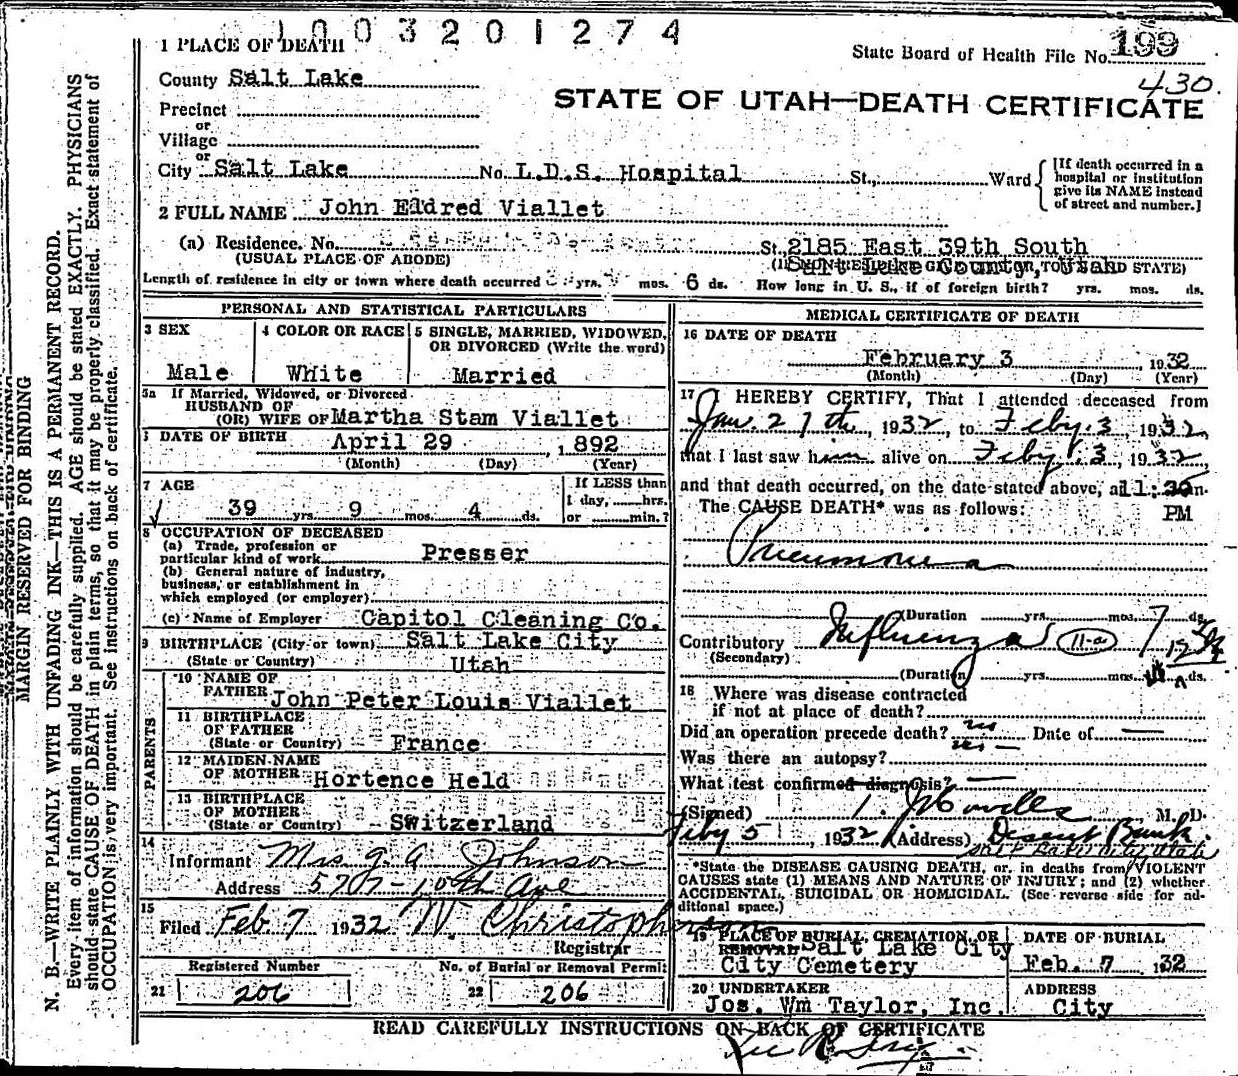 1003201274
1 PLACE OF DEATH
State Board of Health File No. 199
430.
County Salt Lake
STATE OF UTAH—DEATH CERTIFICATE
Precinct
or
Village
or
City Salt Lake No. L.D.S. Hospital St., Ward
[If death occurred in a hospital or institution give its NAME instead of street and number.]
2 FULL NAME John Eldred Viallet
(a) Residence. No. St. 2185 East 39th South
(USUAL PLACE OF ABODE) Salt Lake County, Utah
Length of residence in city or town where death occurred yrs. mos. 6 ds. How long in U. S., if of foreign birth? yrs. mos. ds.
PERSONAL AND STATISTICAL PARTICULARS
3 SEX
Male
4 COLOR OR RACE
White
5 SINGLE, MARRIED, WIDOWED, OR DIVORCED (Write the word)
Married
5a If Married, Widowed, or Divorced
HUSBAND OF
(OR) WIFE OF Martha Stam Viallet
6 DATE OF BIRTH April 29, 1892
(Month) (Day) (Year)
7 AGE
39 yrs. 9 mos. 4 ds.
If LESS than
1 day, hrs.
or min.?
8 OCCUPATION OF DECEASED
(a) Trade, profession or
particular kind of work Presser
(b) General nature of industry,
business, or establishment in
which employed (or employer)
(c) Name of Employer Capitol Cleaning Co.
9 BIRTHPLACE (City or town) Salt Lake City
(State or Country) Utah
PARENTS
10 NAME OF
FATHER John Peter Louis Viallet
11 BIRTHPLACE
OF FATHER
(State or Country) France
12 MAIDEN NAME
OF MOTHER Hortence Held
13 BIRTHPLACE
OF MOTHER
(State or Country) Switzerland
14
Informant Mrs J. A. Johnson
Address 570 - 10th Ave
15
Filed Feb. 7 1932 W. Christopherson
Registrar
Registered Number
21 206
No. of Burial or Removal Permit
22 206
MEDICAL CERTIFICATE OF DEATH
16 DATE OF DEATH
February 3 1932
(Month) (Day) (Year)
17 I HEREBY CERTIFY, That I attended deceased from
Jan. 27th, 1932, to Feby. 3, 1932,
that I last saw him alive on Feby. 3, 1932
and that death occurred, on the date stated above, at 11:30 m.
PM
The CAUSE DEATH* was as follows:
Pneumonia
(Duration yrs. mos. 7 ds.
Contributory Influenza 11-a
(Secondary)
(Duration yrs. mos. ds.
18 Where was disease contracted
if not at place of death?
Did an operation precede death? no Date of —
Was there an autopsy? no —
What test confirmed diagnosis? —
(Signed) M. D.
Feby 5, 1932 (Address) Deseret Bank.
Salt Lake City Utah
*State the DISEASE CAUSING DEATH, or, in deaths from VIOLENT
CAUSES state (1) MEANS AND NATURE OF INJURY; and (2) whether
ACCIDENTAL, SUICIDAL OR HOMICIDAL. (See reverse side for ad-
ditional space.)
19 PLACE OF BURIAL, CREMATION, OR
REMOVAL Salt Lake City
City Cemetery
DATE OF BURIAL
Feb. 7 1932
20 UNDERTAKER
Jos. Wm Taylor, Inc.
ADDRESS
City
READ CAREFULLY INSTRUCTIONS ON BACK OF CERTIFICATE
MARGIN RESERVED FOR BINDING
N. B.—WRITE PLAINLY WITH UNFADING INK—THIS IS A PERMANENT RECORD.
Every item of information should be carefully supplied. AGE should be stated EXACTLY. PHYSICIANS
should state CAUSE OF DEATH in plain terms, so that it may be properly classified. Exact statement of
OCCUPATION is very important. See instructions on back of certificate.